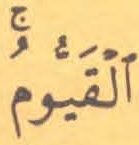 ٱلْقَيُّومُۚ